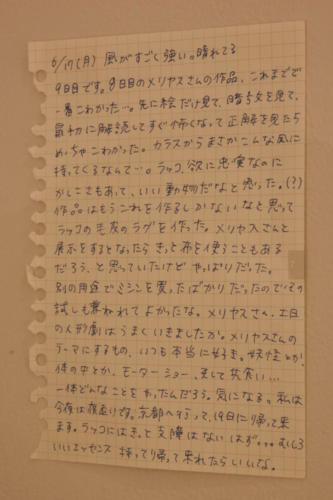 6/17(月) 風がすごく強い。晴れてる
9日目です。8日目のメリヤスさんの作品、これまでで
一番こわかった…。先に絵だけ見て、暗号文を見て、
最初に解読してすぐ怖くなって正解を見たら
めっちゃこわかった。カラスからまさかこんな風に
持ってくるなんて…。ラッコ、欲に忠実なのに
かしこさもあって、いい動物だなと思った。(?)
作品はもうこれを作るしかないなと思って
ラッコの毛皮のラグを作った。メリヤスさんと
展示をするとなったらきっと布を使うこともある
だろう、と思っていたけどやっぱりだった。
別の用途でミシンを買ったばかりだったので
試しも兼ねれてよかったな。メリヤスさん、土日
の人形劇はうまくいきましたか。メリヤスさんの
テーマにするもの、いつも本当に好き。妖怪とか、
体の中とか、モーターショー、そして共食い…
一体どんなことをやったんだろう。気になる。私は
今夜は夜走りです。京都へ行って、19日に帰って来
ます。ラッコにはきっと支障はないはず。。。むしろ
いいエッセンス持って帰って来れたらいいな。